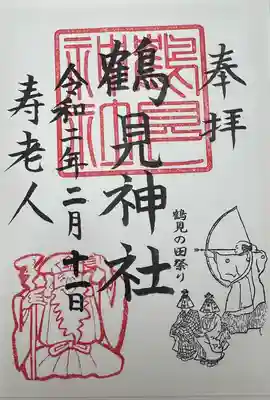 奉拝
鶴見神社
令和二年二月十一日
寿老人
鶴見の田祭り
鶴見神社